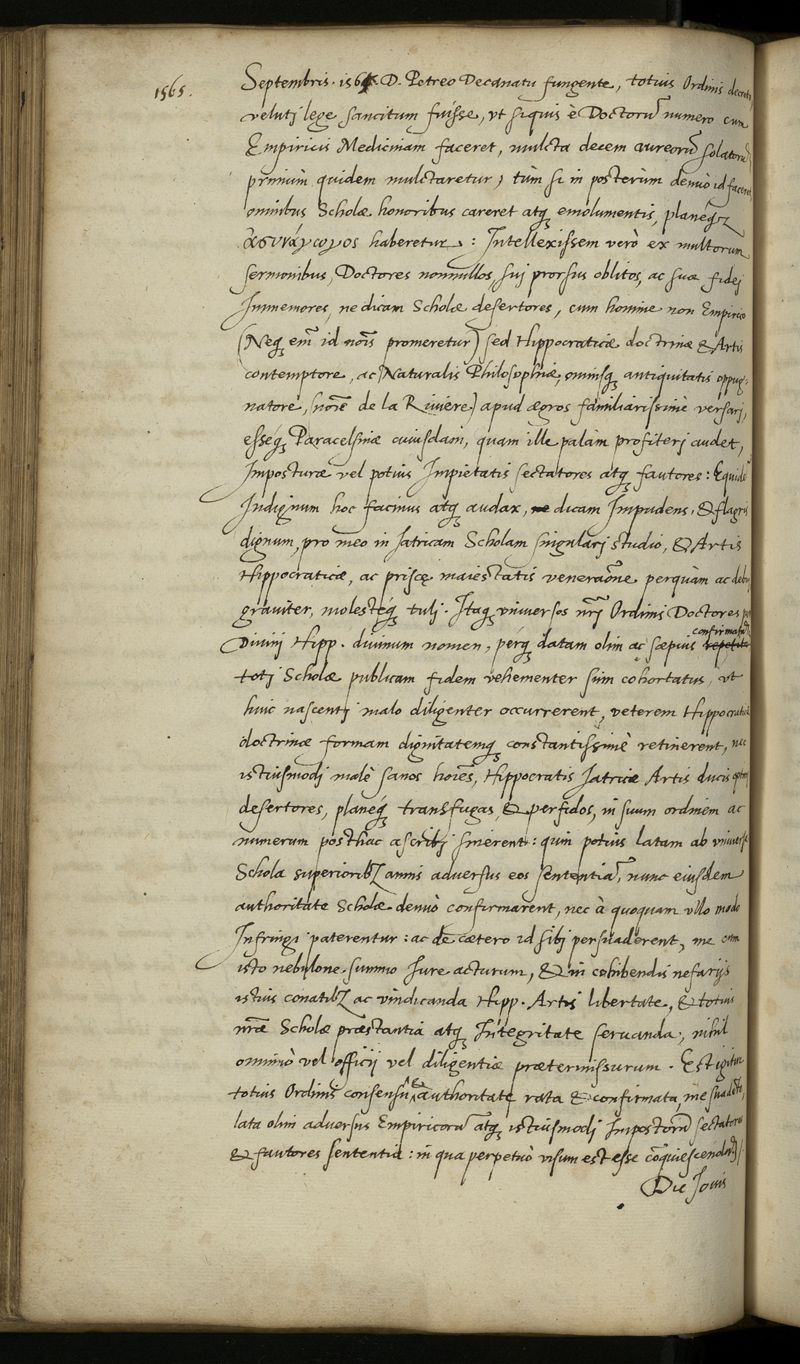 1565.
Septembris. 156 D. Petreo Decanatu fungente, totius Ordinis decreto
velutj lege sancitum fuisse, vt siquis è Doctorũ numero cum
Empiricis Medicinam faceret, mulcta decem aureorũ solatorũ
primùm quidem mulctaretur, tùm si in posterùm denuò id faceret
omnibus Scholæ honoribus careret atq emolumentis, planéq
ἀσυνάγωγος haberetur: Intellexissem verò ex multorum
sermonibus, Doctores nonnullos, suj prorsus oblitos, ac suæ fidej
Immemores, ne dicam Scholæ desertores, cum homine non Empirico
(Neq em̃ id nois promeretur) sed Hippocraticæ doctrinæ & Artis
contemptore, ac Naturalis Philosophiæ, omnisq antiquitatis oppug-
natore, (noĩe de la Riuiere) apud ægros familiarissimè versarj,
esséq Paracelsinæ cuiusdam, quam ille palàm profiterj audet,
Imposturæ vel potius Impietatis sectatores atq fautores: Equidẽ
Indignum hoc facinus atq audax, ne dicam Impudens, & flagris
dignum, pro meo in Iatricam Scholam singularj studio, & Artis
Hippocraticæ, ac priscę maiestatis veneraõne perquàm ac debuj
grauiter, molestéq tulj. Itaq vniuersos nrj Ordinis Doctores per
Diuinj Hipp. diuinum nomen, pérq datam olim ac sæpius repetitã confirmatã
totj Scholæ publicam fidem vehementer sum cohortatus, vt
huic nascentj malo diligenter occurrerent, veterem Hippocraticæ
doctrinæ formam dignitatemq constantissimè retinerent, nec
istiusmodj malè sanos hoies, Hippocratis Iatricæ Artis ducis optimj
desertores, planéq transfugas, & perfidos, in suum ordinem ac
numerum posthac ascribj sinerent: quin potius latam ab vniuersa
Schola superioribz annis aduersus eos sententiã, nunc eiusdem
authoritate Scholæ denuò confirmarent, nec à quoquam vllo modo
Infringi paterentur: ac de cætero id sibj persuaderent, me cum
isto nebulone summo Iure acturum, & in cohibendis nefarijs
istius conatibz ac vindicanda Hipp. Artis libertate, & totius
nræ Scholæ præstantia atq Integritate seruanda, nihil
omninò vel officij vel diligentiæ prætermissurum. Est igitur
totius Ordinis consensu & authoritate rata & confirmata, me suadente,
lata olim aduersus Empiricorũ atq istiusmodj Impostorũ sectatores
& fautores sententia: in qua perpetuò visum est esse cõquiescendum/.
Die Iouis